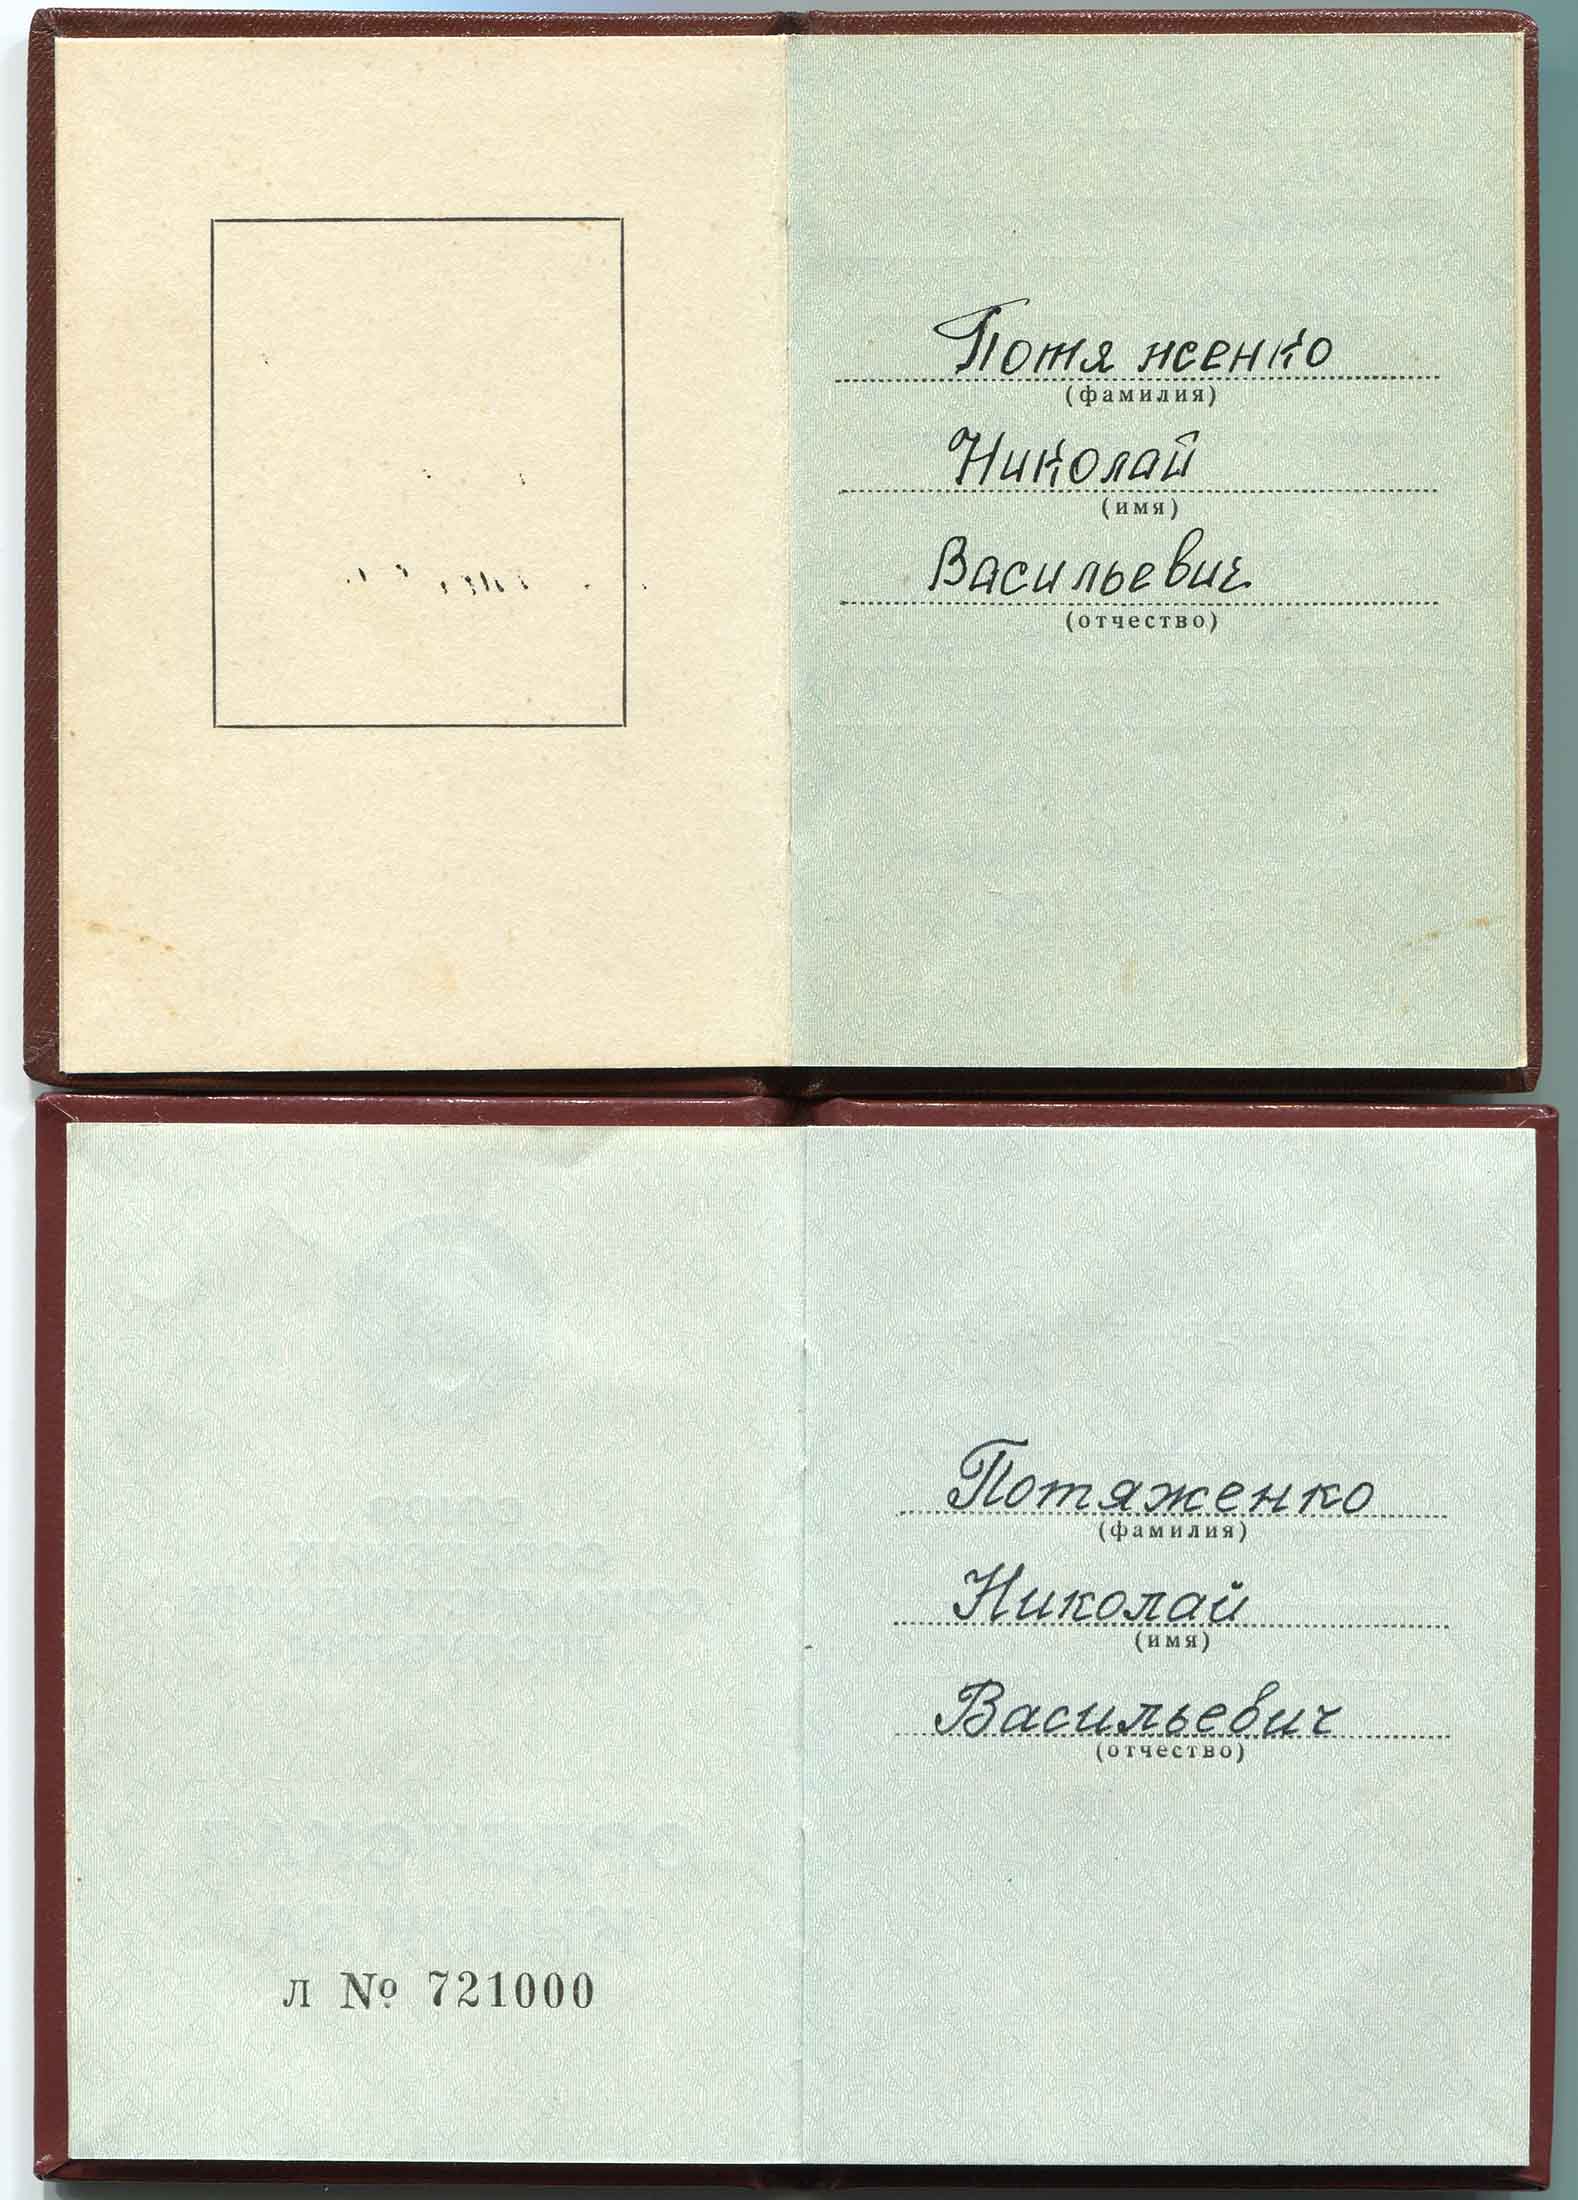 Потяженко
(фамилия)
Николай
(имя)
Васильевич
(отчество)
Потяженко
(фамилия)
Николай
(имя)
Васильевич
(отчество)
Л № 721000